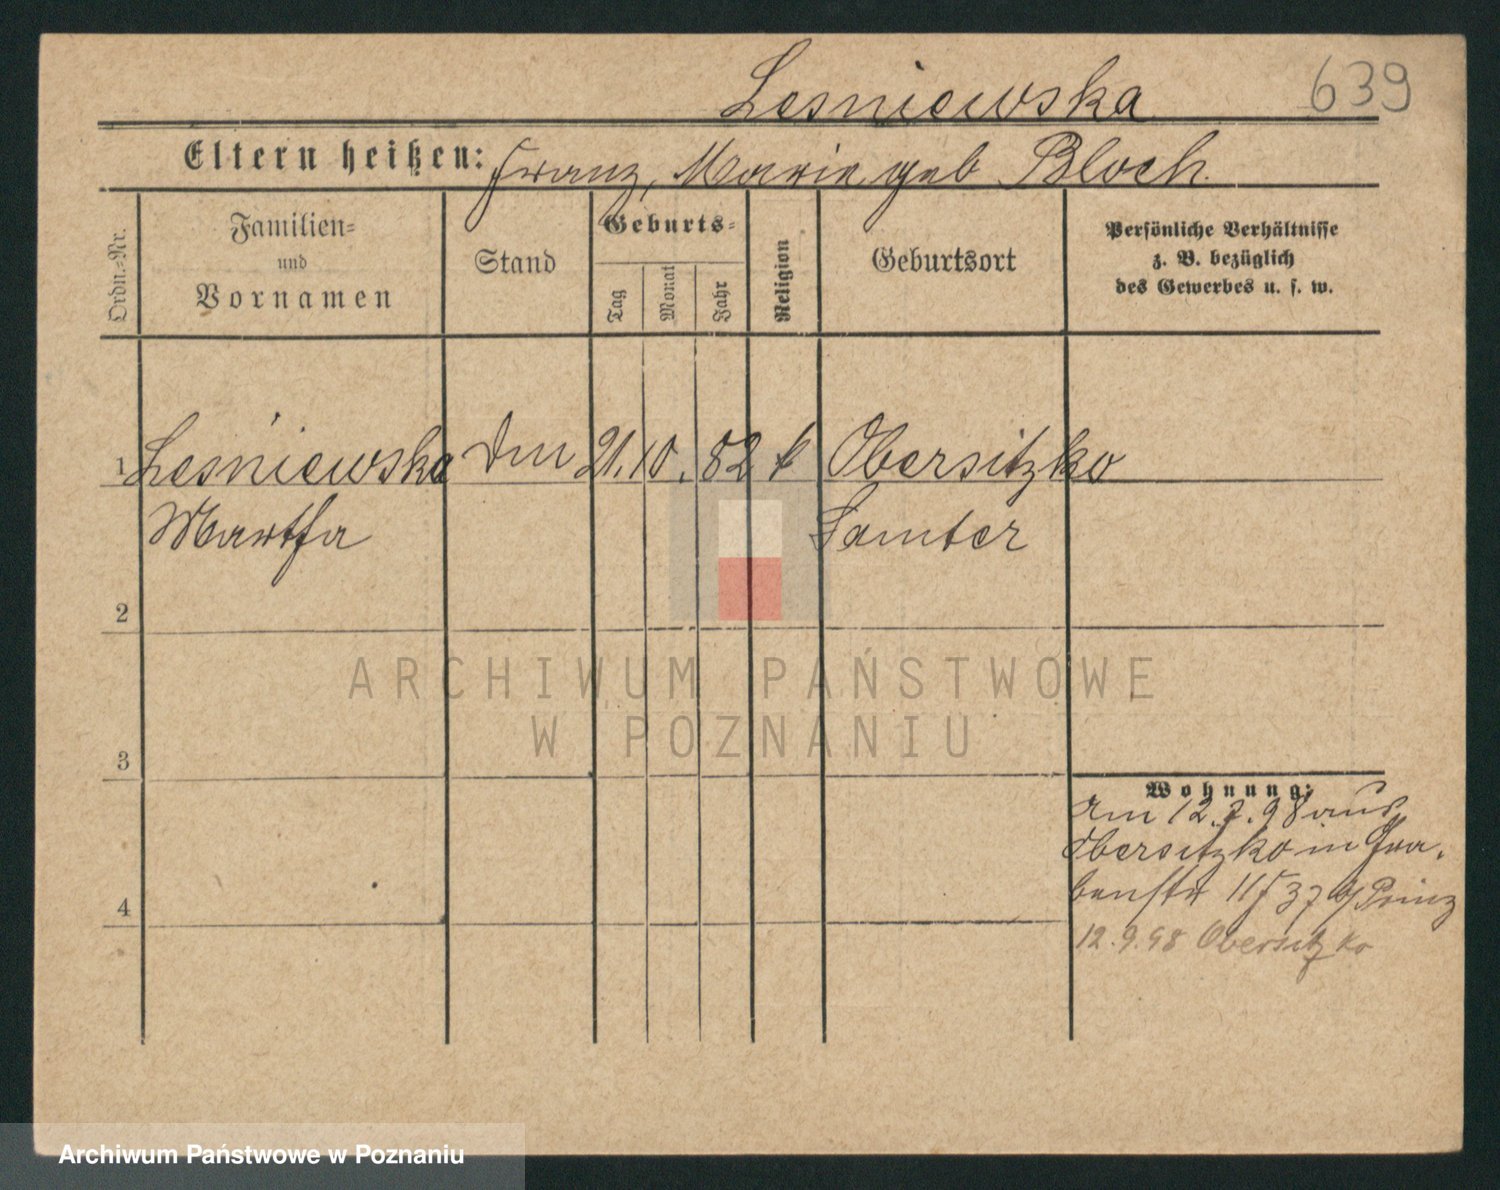 Lesniewska 639
Eltern heißen: Franz, Marie geb Bloch.
Ordn.-Nr.
Familien-
und
Vornamen
Stand
Geburts-
Tag
Monat
Jahr
Religion
Geburtsort
Persönliche Verhältnisse
z. B. bezüglich
des Gewerbes u. s. w.
1 Leśniewska 21. 10. 82 k Obersitzko
Martha Samter
2
ARCHIWUM PAŃSTWOWE
W POZNANIU
3
Wohnung:
Am 12.7.98 aus
Obersitzko in Gra-
benstr Prinz
4
12.9.98 Obersitzko
Archiwum Państwowe w Poznaniu